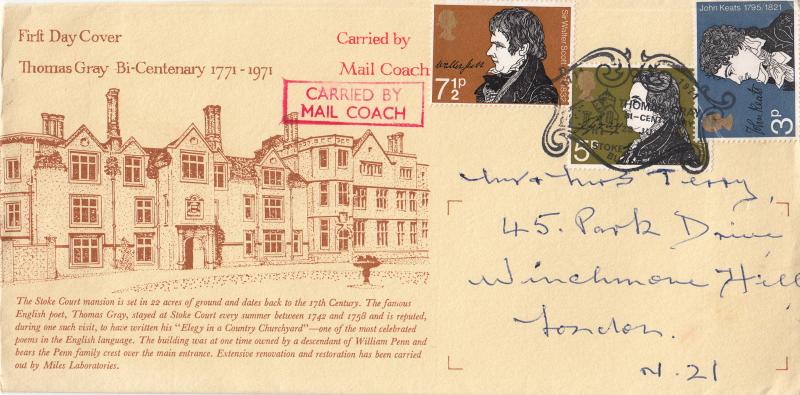 First Day Cover
Thomas Gray Bi-Centenary 1771 - 1971
Carried by
Mail Coach
CARRIED BY
MAIL COACH
Walter Scott
7½P
Sir Walter Scott
5
THOMAS GRAY
BI-CENTENARY
STOKE
John Keats 1795/1821
John Keats
3P
Mr & Mrs Terry,
45. Park Drive
Winchmore Hill
London.
N. 21
The Stoke Court mansion is set in 22 acres of ground and dates back to the 17th Century. The famous
English poet, Thomas Gray, stayed at Stoke Court every summer between 1742 and 1758 and is reputed,
during one such visit, to have written his "Elegy in a Country Churchyard"—one of the most celebrated
poems in the English language. The building was at one time owned by a descendant of William Penn and
bears the Penn family crest over the main entrance. Extensive renovation and restoration has been carried
out by Miles Laboratories.